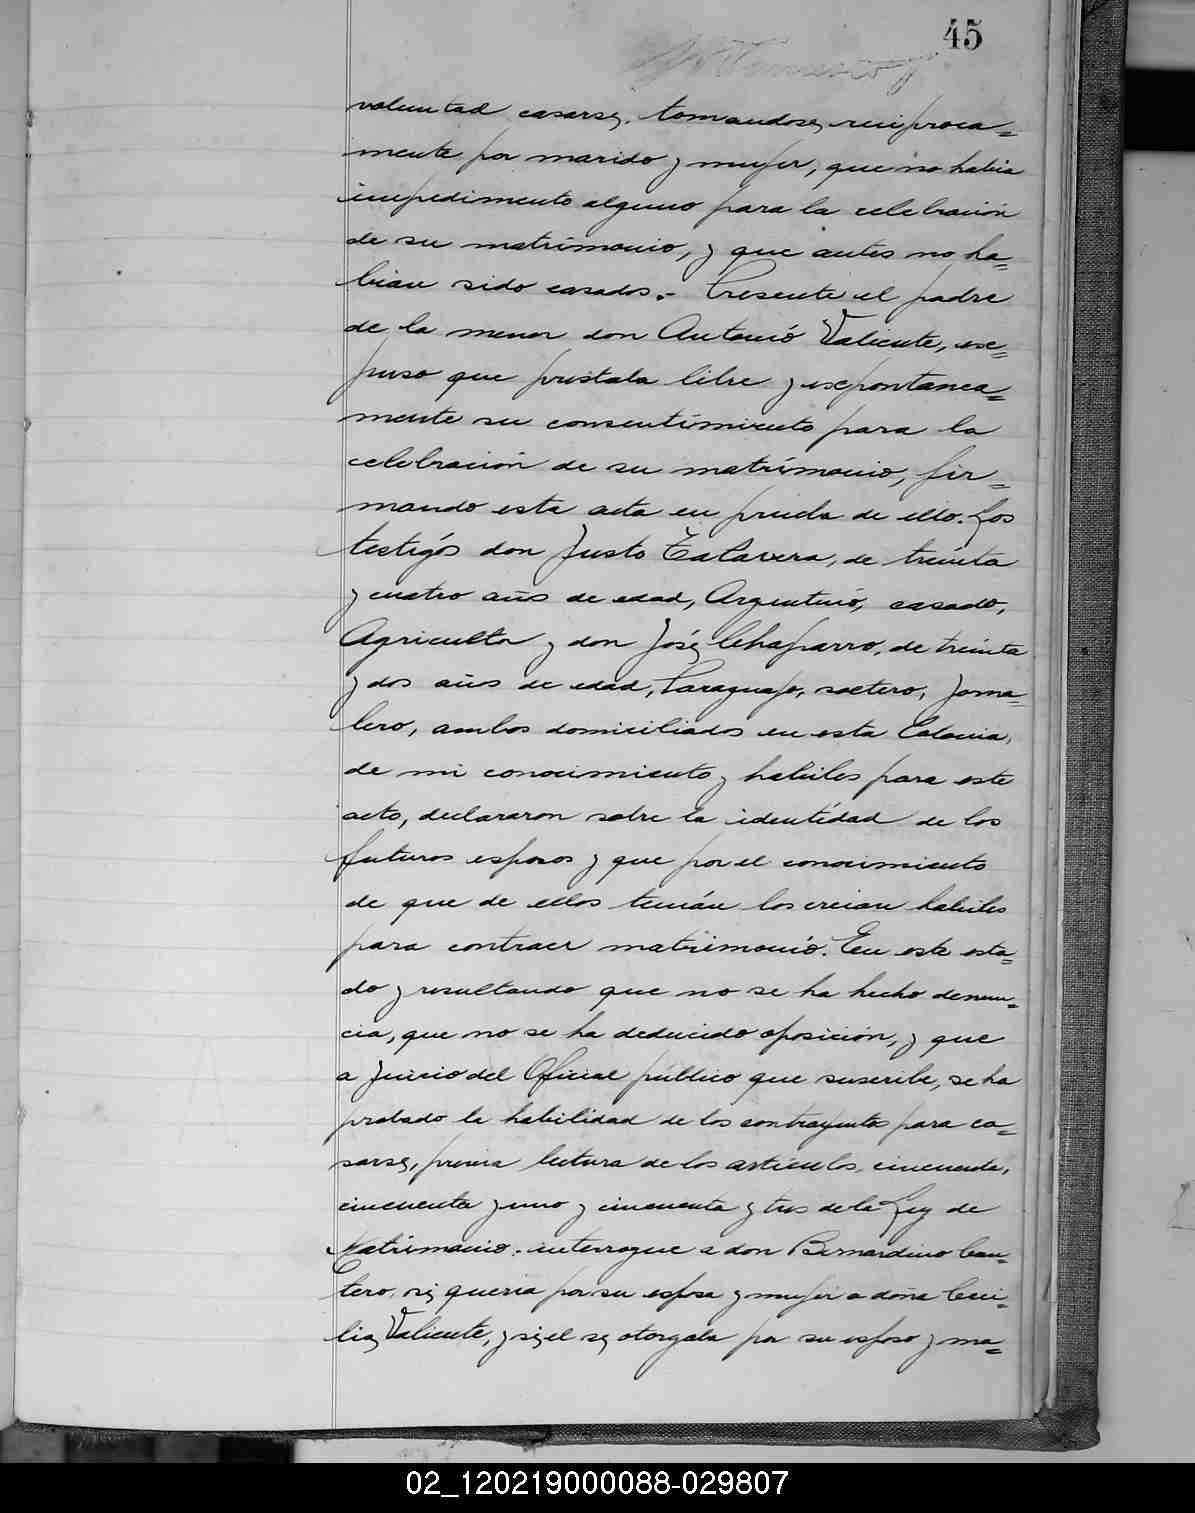 45
voluntad casarse, tomandose, reciproca=
mente por marido y mujer, que no habia
impedimento alguno para la celebración
de su matrimonio, y que antes no ha=
bian sido casados.- Presente el padre
de la menor don Antonió Valiente, ex=
puso que prestaba libre y expontanea=
mente su consentimiento para la
celebración de su matrimonio, fir=
mando esta acta en prueba de ello. Los
testigós don Justo Talavera, de treinta
y cuatro años de edad, Argentinó, casado,
Agricultor y don José Chaparro, de treinta
y dos años de edad, Paraguayo, soltero, Jorna=
lero, ambos domiciliados en esta Colonia,
de mi conocimiento y habiles para este
acto, declararon sobre la identidad de los
futuros esposos y que por el conocimiento
de que de ellos tenián los creian habiles
para contraer matrimonió. En este esta=
do y resultando que no se ha hecho denun=
cia, que no se ha deducido oposición, y que
a Juicio del Oficial público que suscribe, se ha
probado la habilidad de los contrayentes para ca=
sarse, previa lectura de los articulos, cincuenta,
cincuenta y uno y cincuenta y tres de la Ley de
Matrimonio. interrogue a don Bernardino Can=
tero, si queria por su esposa y mujer a doña Ceci=
lia Valiente, y si el se otorgaba por su esposo y ma=
02_120219000088-029807